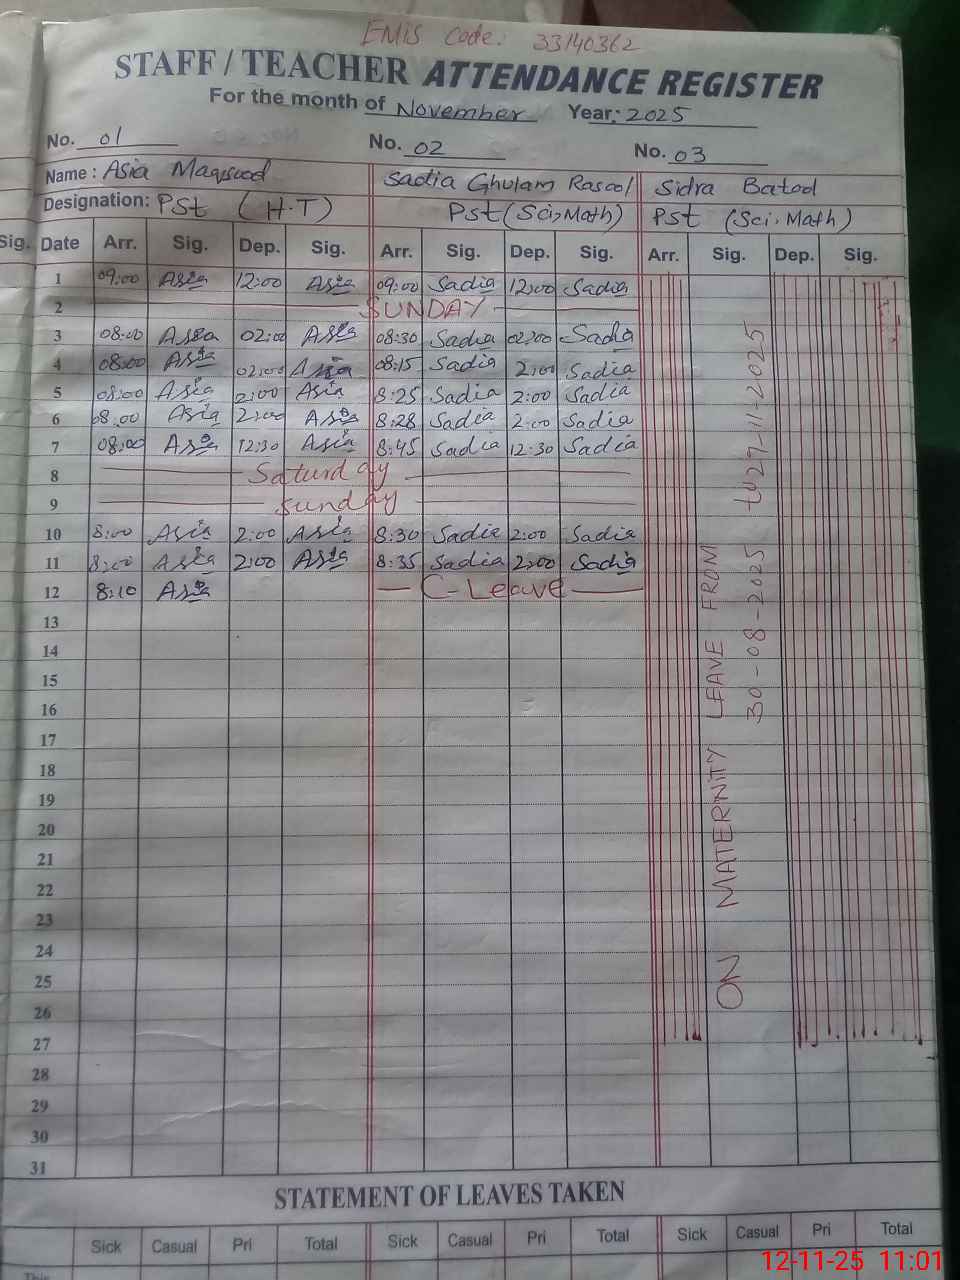 EMIS Code: 33140362
STAFF / TEACHER ATTENDANCE REGISTER
For the month of November Year: 2025
No. 01 No. 02 No. 03
Name: Asia Maqsood Sadia Ghulam Rasool Sidra Batool
Designation: PSt (H.T) Pst (Sci, Math) PSt (Sci. Math)
Sig. Date Arr. Sig. Dep. Sig. Arr. Sig. Dep. Sig. Arr. Sig. Dep. Sig.
1 09:00 Asia 12:00 Asia 09:00 Sadia 12:00 Sadia
2 SUNDAY
3 08:00 Asia 02:00 Asia 08:30 Sadia 02:00 Sadia
4 08:00 Asia 02:00 Asia 08:15 Sadia 2:00 Sadia
5 08:00 Asia 2:00 Asia 8:25 Sadia 2:00 Sadia
6 08:00 Asia 2:00 Asia 8:28 Sadia 2:00 Sadia
7 08:00 Asia 12:30 Asia 8:45 Sadia 12:30 Sadia
8 Saturday
9 Sunday
10 8:00 Asia 2:00 Asia 8:30 Sadia 2:00 Sadia
11 8:00 Asia 2:00 Asia 8:35 Sadia 2:00 Sadia
12 8:10 Asia C-Leave
13
14
15
16
17
18
19
20
21
22
23
24
25
26
27
28
29
30
31
ON MATERNITY LEAVE FROM
30-08-2025 to 27-11-2025
STATEMENT OF LEAVES TAKEN
Sick Casual Pri Total Sick Casual Pri Total Sick Casual Pri Total
This
12-11-25 11:01